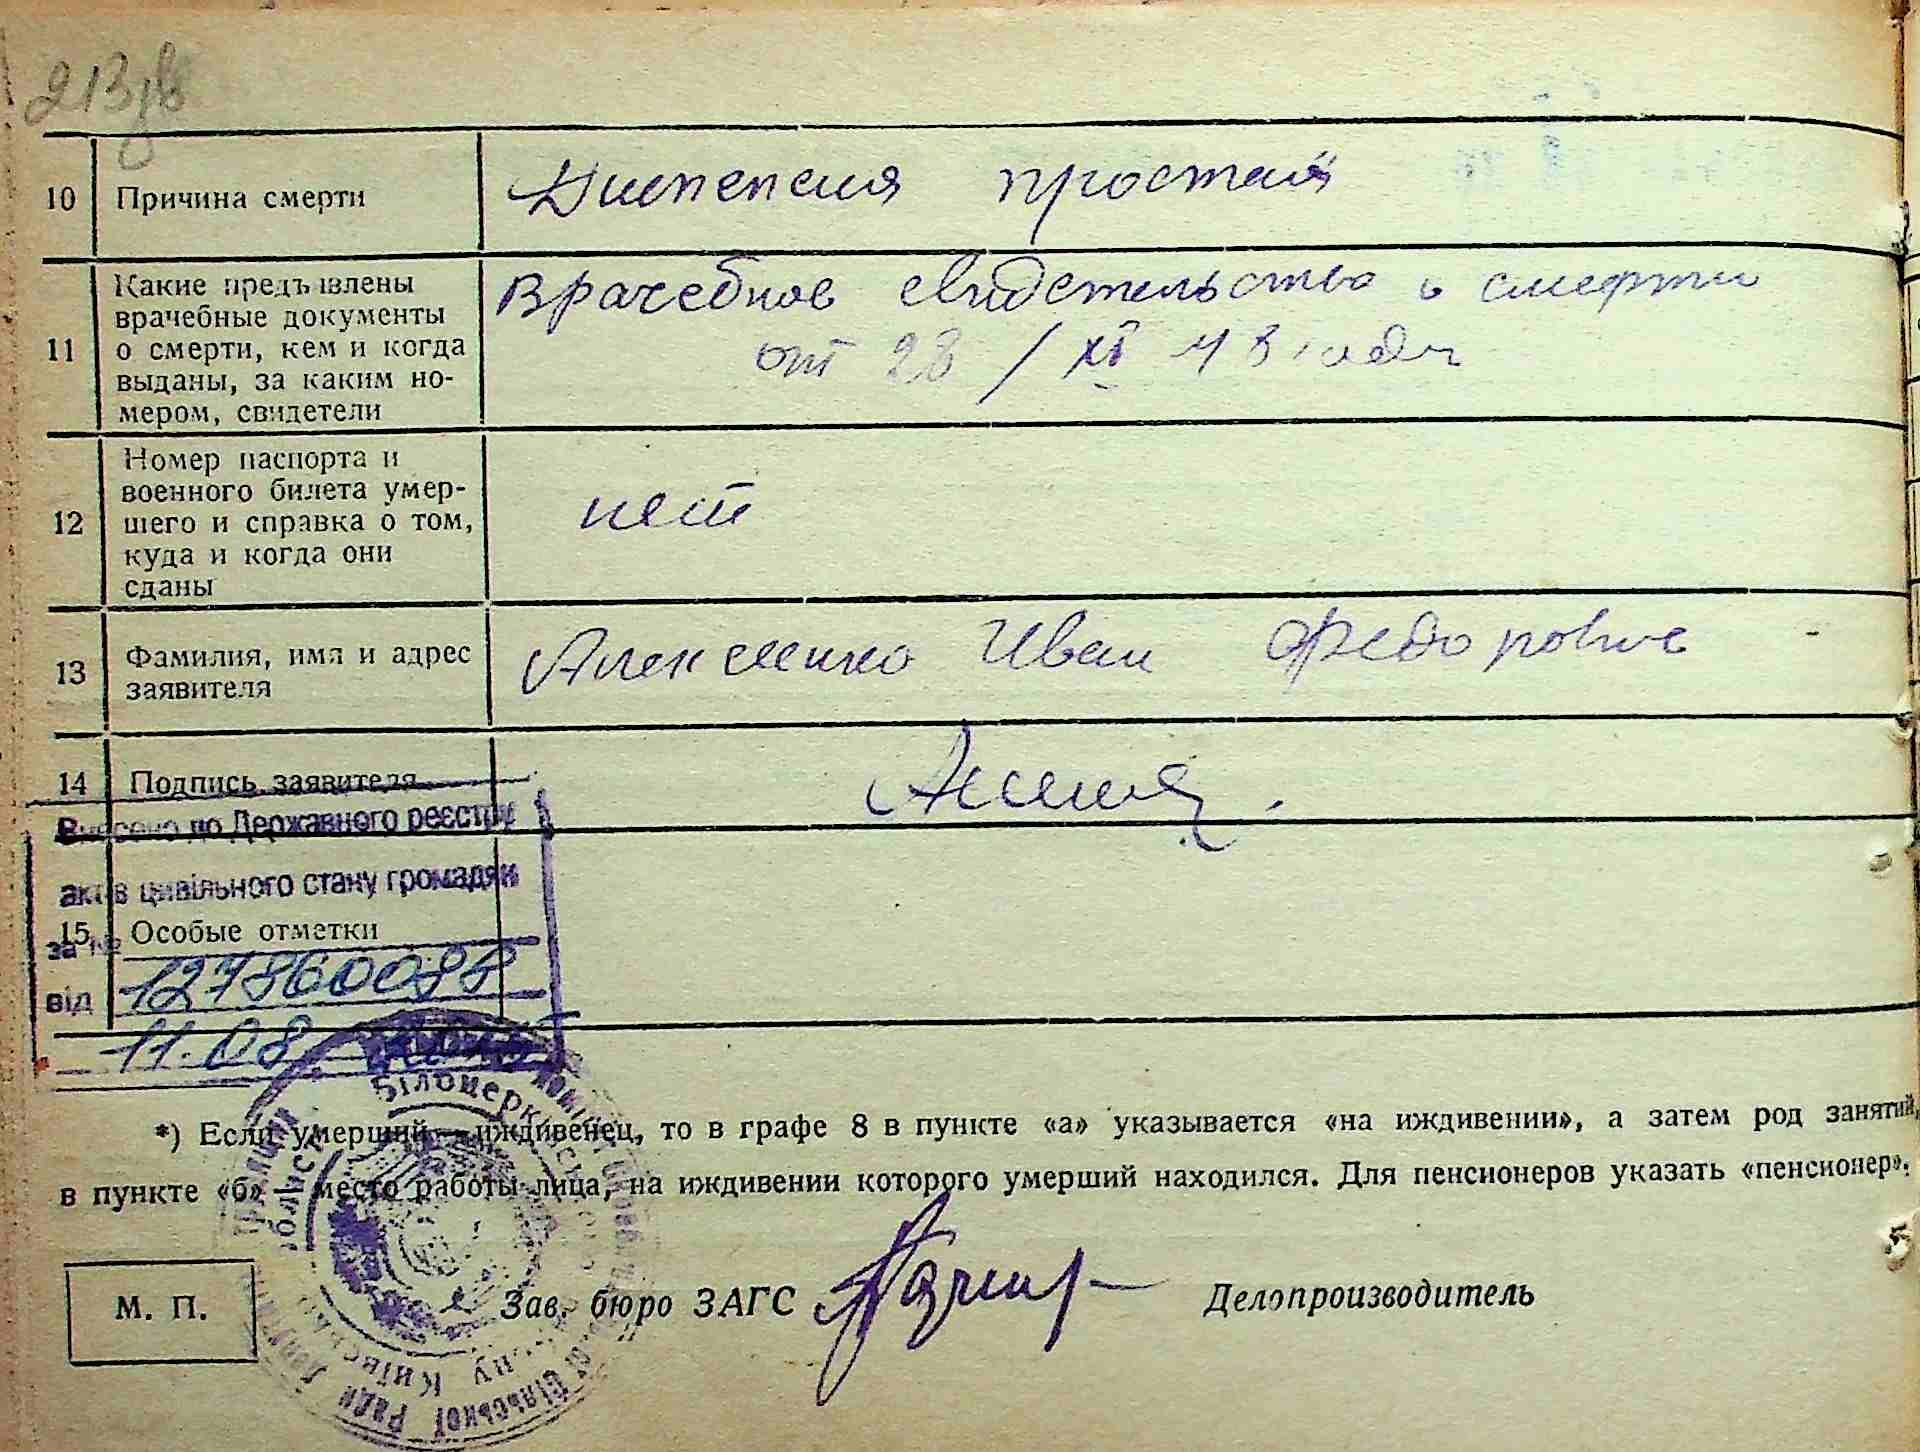 10 Причина смерти Диспепсия простая
11 Какие предъявлены врачебные документы о смерти, кем и когда выданы, за каким но-
мером, свидетели
Врачебное свидетельство о смерти
от 28 / XI
12 Номер паспорта и
военного билета умер-
шего и справка о том,
куда и когда они
сданы
нет
13 Фамилия, имя и адрес
заявителя
Иван Федорович
14 Подпись заявителя
Внесено до Державного реєстру
актів цивільного стану громадян
15 Особые отметки
за №
від
11.08
*) Если умерший — иждивенец, то в графе 8 в пункте «а» указывается «на иждивении», а затем род занятий,
в пункте «б» — место работы лица, на иждивении которого умерший находился. Для пенсионеров указать «пенсионер».
М. П.
Зав. бюро ЗАГС Делопроизводитель